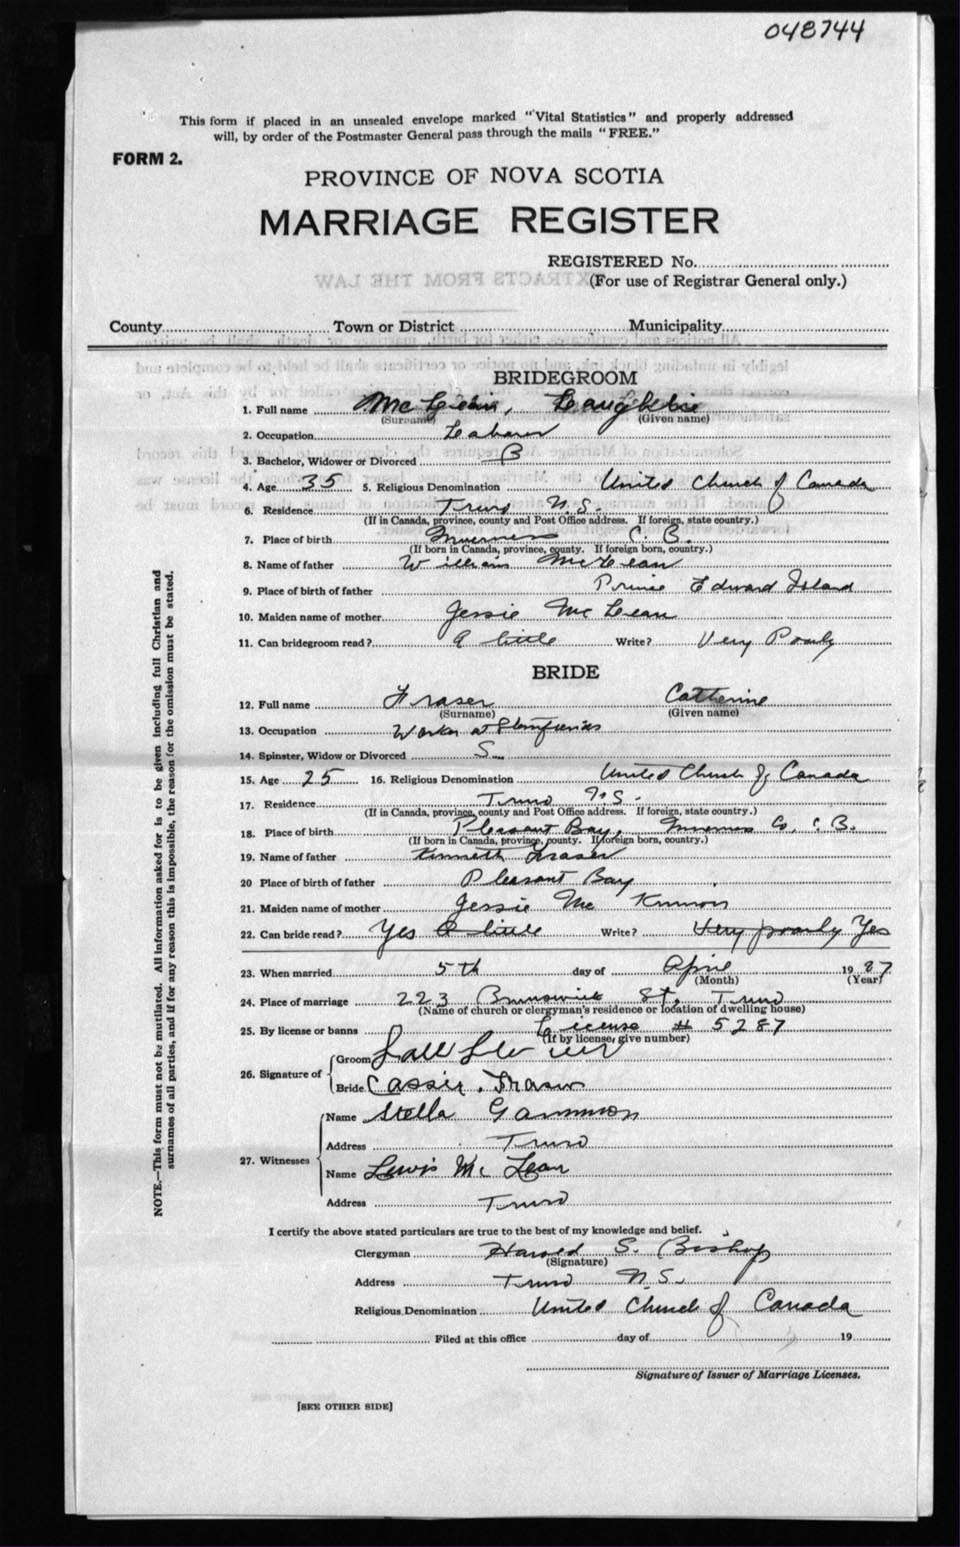 048744
This form if placed in an unsealed envelope marked "Vital Statistics" and properly addressed
will, by order of the Postmaster General pass through the mails "FREE."
FORM 2.
PROVINCE OF NOVA SCOTIA
MARRIAGE REGISTER
REGISTERED No.
EXTRACTS FROM THE LAW
(For use of Registrar General only.)
County Town or District Municipality
BRIDEGROOM
1. Full name McLean, Laughlie
(Surname) (Given name)
2. Occupation Laborer
3. Bachelor, Widower or Divorced B
4. Age 35 5. Religious Denomination United Church of Canada
6. Residence Truro N.S.
(If in Canada, province, county and Post Office address. If foreign, state country.)
7. Place of birth Inverness C. B.
(If born in Canada, province, county. If foreign born, country.)
8. Name of father William McLean
9. Place of birth of father Prince Edward Island
10. Maiden name of mother Jessie McLean
11. Can bridegroom read? A little Write? Very Poorly
BRIDE
12. Full name Fraser Catherine
(Surname) (Given name)
13. Occupation Worker at
14. Spinster, Widow or Divorced S
15. Age 25 16. Religious Denomination United Church of Canada
17. Residence Truro N.S.
(If in Canada, province, county and Post Office address. If foreign, state country.)
18. Place of birth Pleasant Bay, Inverness Co, C. B.
(If born in Canada, province, county. If foreign born, country.)
19. Name of father Kenneth Fraser
20 Place of birth of father Pleasant Bay
21. Maiden name of mother Jessie Mc Kinnon
22. Can bride read? Yes A little Write? Very poorly Yes
23. When married 5th day of April 19
(Month) (Year)
24. Place of marriage 223 Brunswick St, Truro
(Name of church or clergyman's residence or location of dwelling house)
25. By license or banns License # 5287
(If by license, give number)
26. Signature of
Groom
Bride Cassie Fraser
27. Witnesses
Name Stella Gammon
Address Truro
Name Lewis Mc Lean
Address Truro
I certify the above stated particulars are true to the best of my knowledge and belief.
Clergyman Harold S. Bishop
(Signature)
Address Truro N.S.
Religious Denomination United Church of Canada
Filed at this office day of 19
Signature of Issuer of Marriage Licenses.
[SEE OTHER SIDE]
NOTE.—This form must not be mutilated. All information asked for is to be given including full Christian and
surnames of all parties, and if for any reason this is impossible, the reason for the omission must be stated.